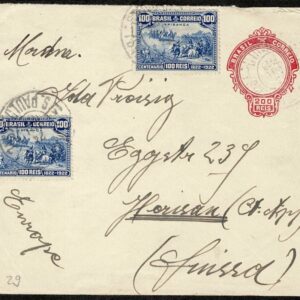 100 BRASIL CORREIO 100
CENTENARIO 100 REIS 1822-1922
BRASIL CORREIO
200
REIS
Ida
S. PAULO
BRASIL CORREIO 100
CENTENARIO 100 REIS 1822-1922
Eggstr 237
Herisau (Ct. App)
(Suissa)
Europe
29